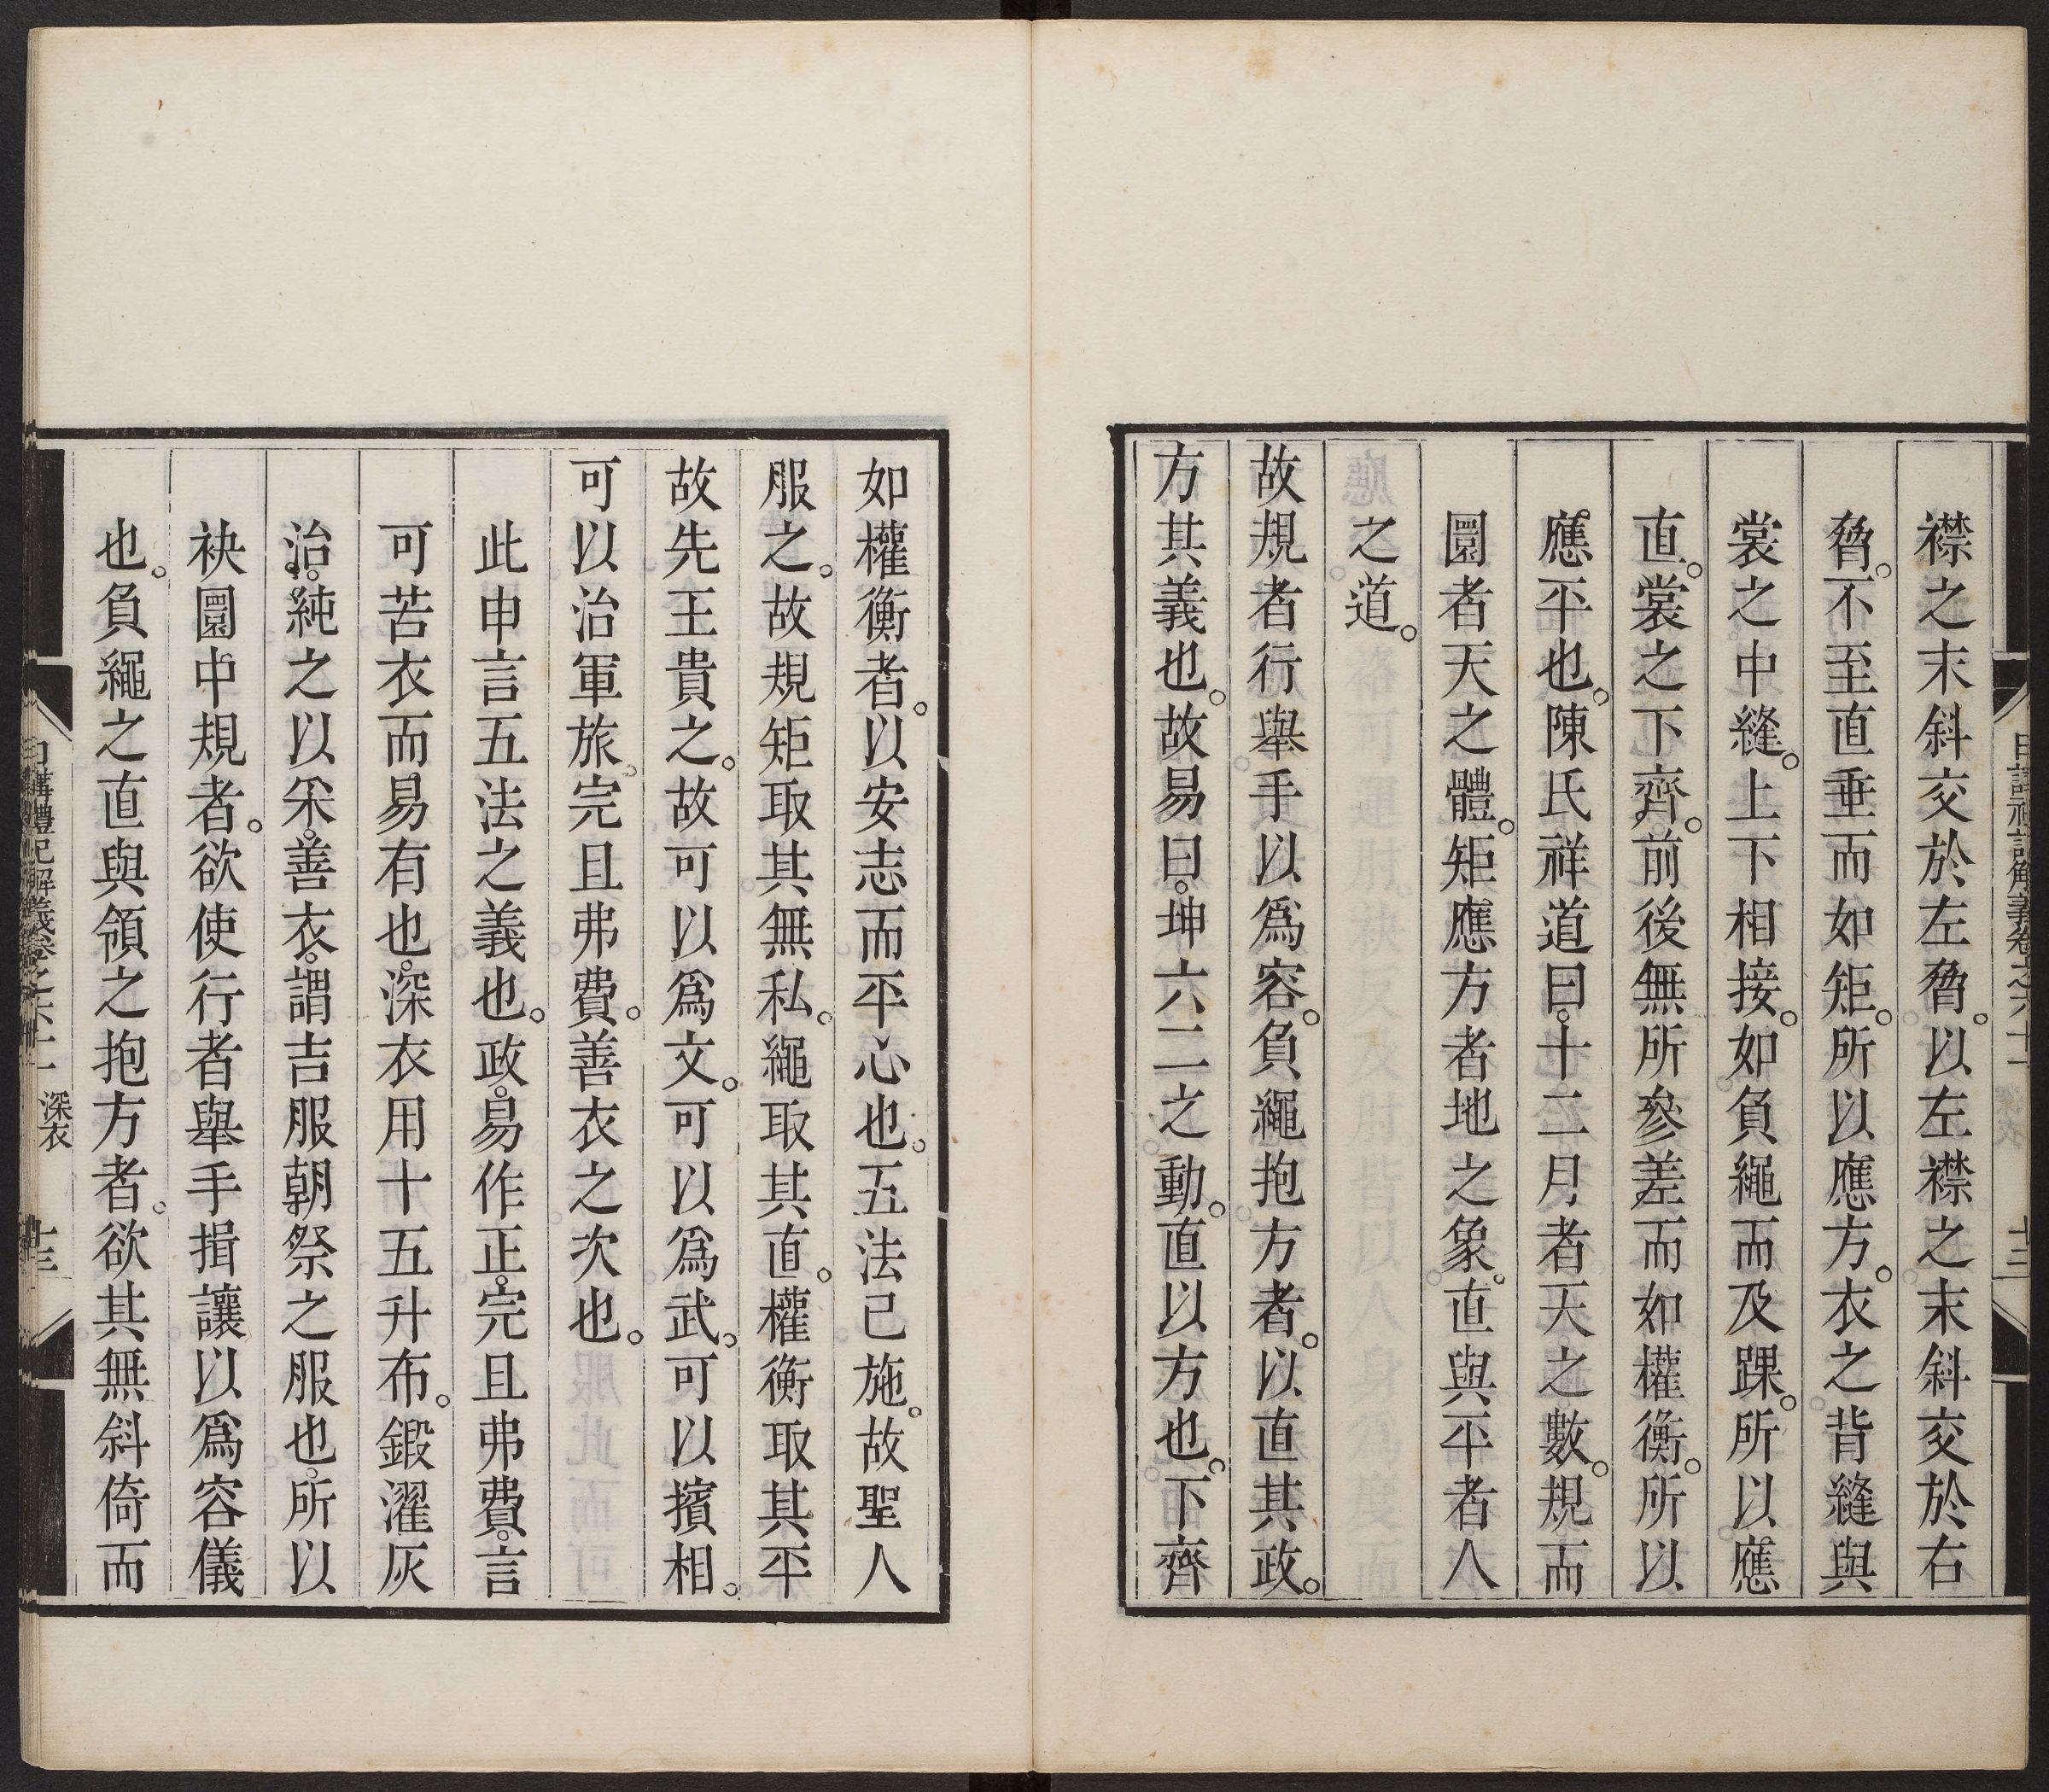 襟之末斜交於左脅。以左襟之末斜交於右
脅。不至直垂而如矩。所以應方。衣之背縫與
裳之中縫。上下相接。如負繩而及踝。所以應
直。裳之下齊。前後無所參差而如權衡。所以
應平也。陳氏祥道曰。十二月者天之數。規而
圜者天之體。矩應方者地之象。直與平者人
之道。
故規者行舉手以爲容。負繩抱方者。以直其政。
方其義也。故易曰。坤六二之動。直以方也。下齊
如權衡者。以安志而平心也。五法已施。故聖人
服之。故規矩取其無私。繩取其直。權衡取其平
故先王貴之。故可以爲文。可以爲武。可以擯相。
可以治軍旅。完且弗費。善衣之次也。
此申言五法之義也。政。易作正。完且弗費。言
可苦衣而易有也。深衣用十五升布。鍛濯灰
治。純之以采。善衣。謂吉服朝祭之服也。所以
袂圜中規者。欲使行者舉手揖讓以爲容儀
也。負繩之直與領之抱方者。欲其無斜倚而
日講禮記解義卷之六十一 深衣 十三